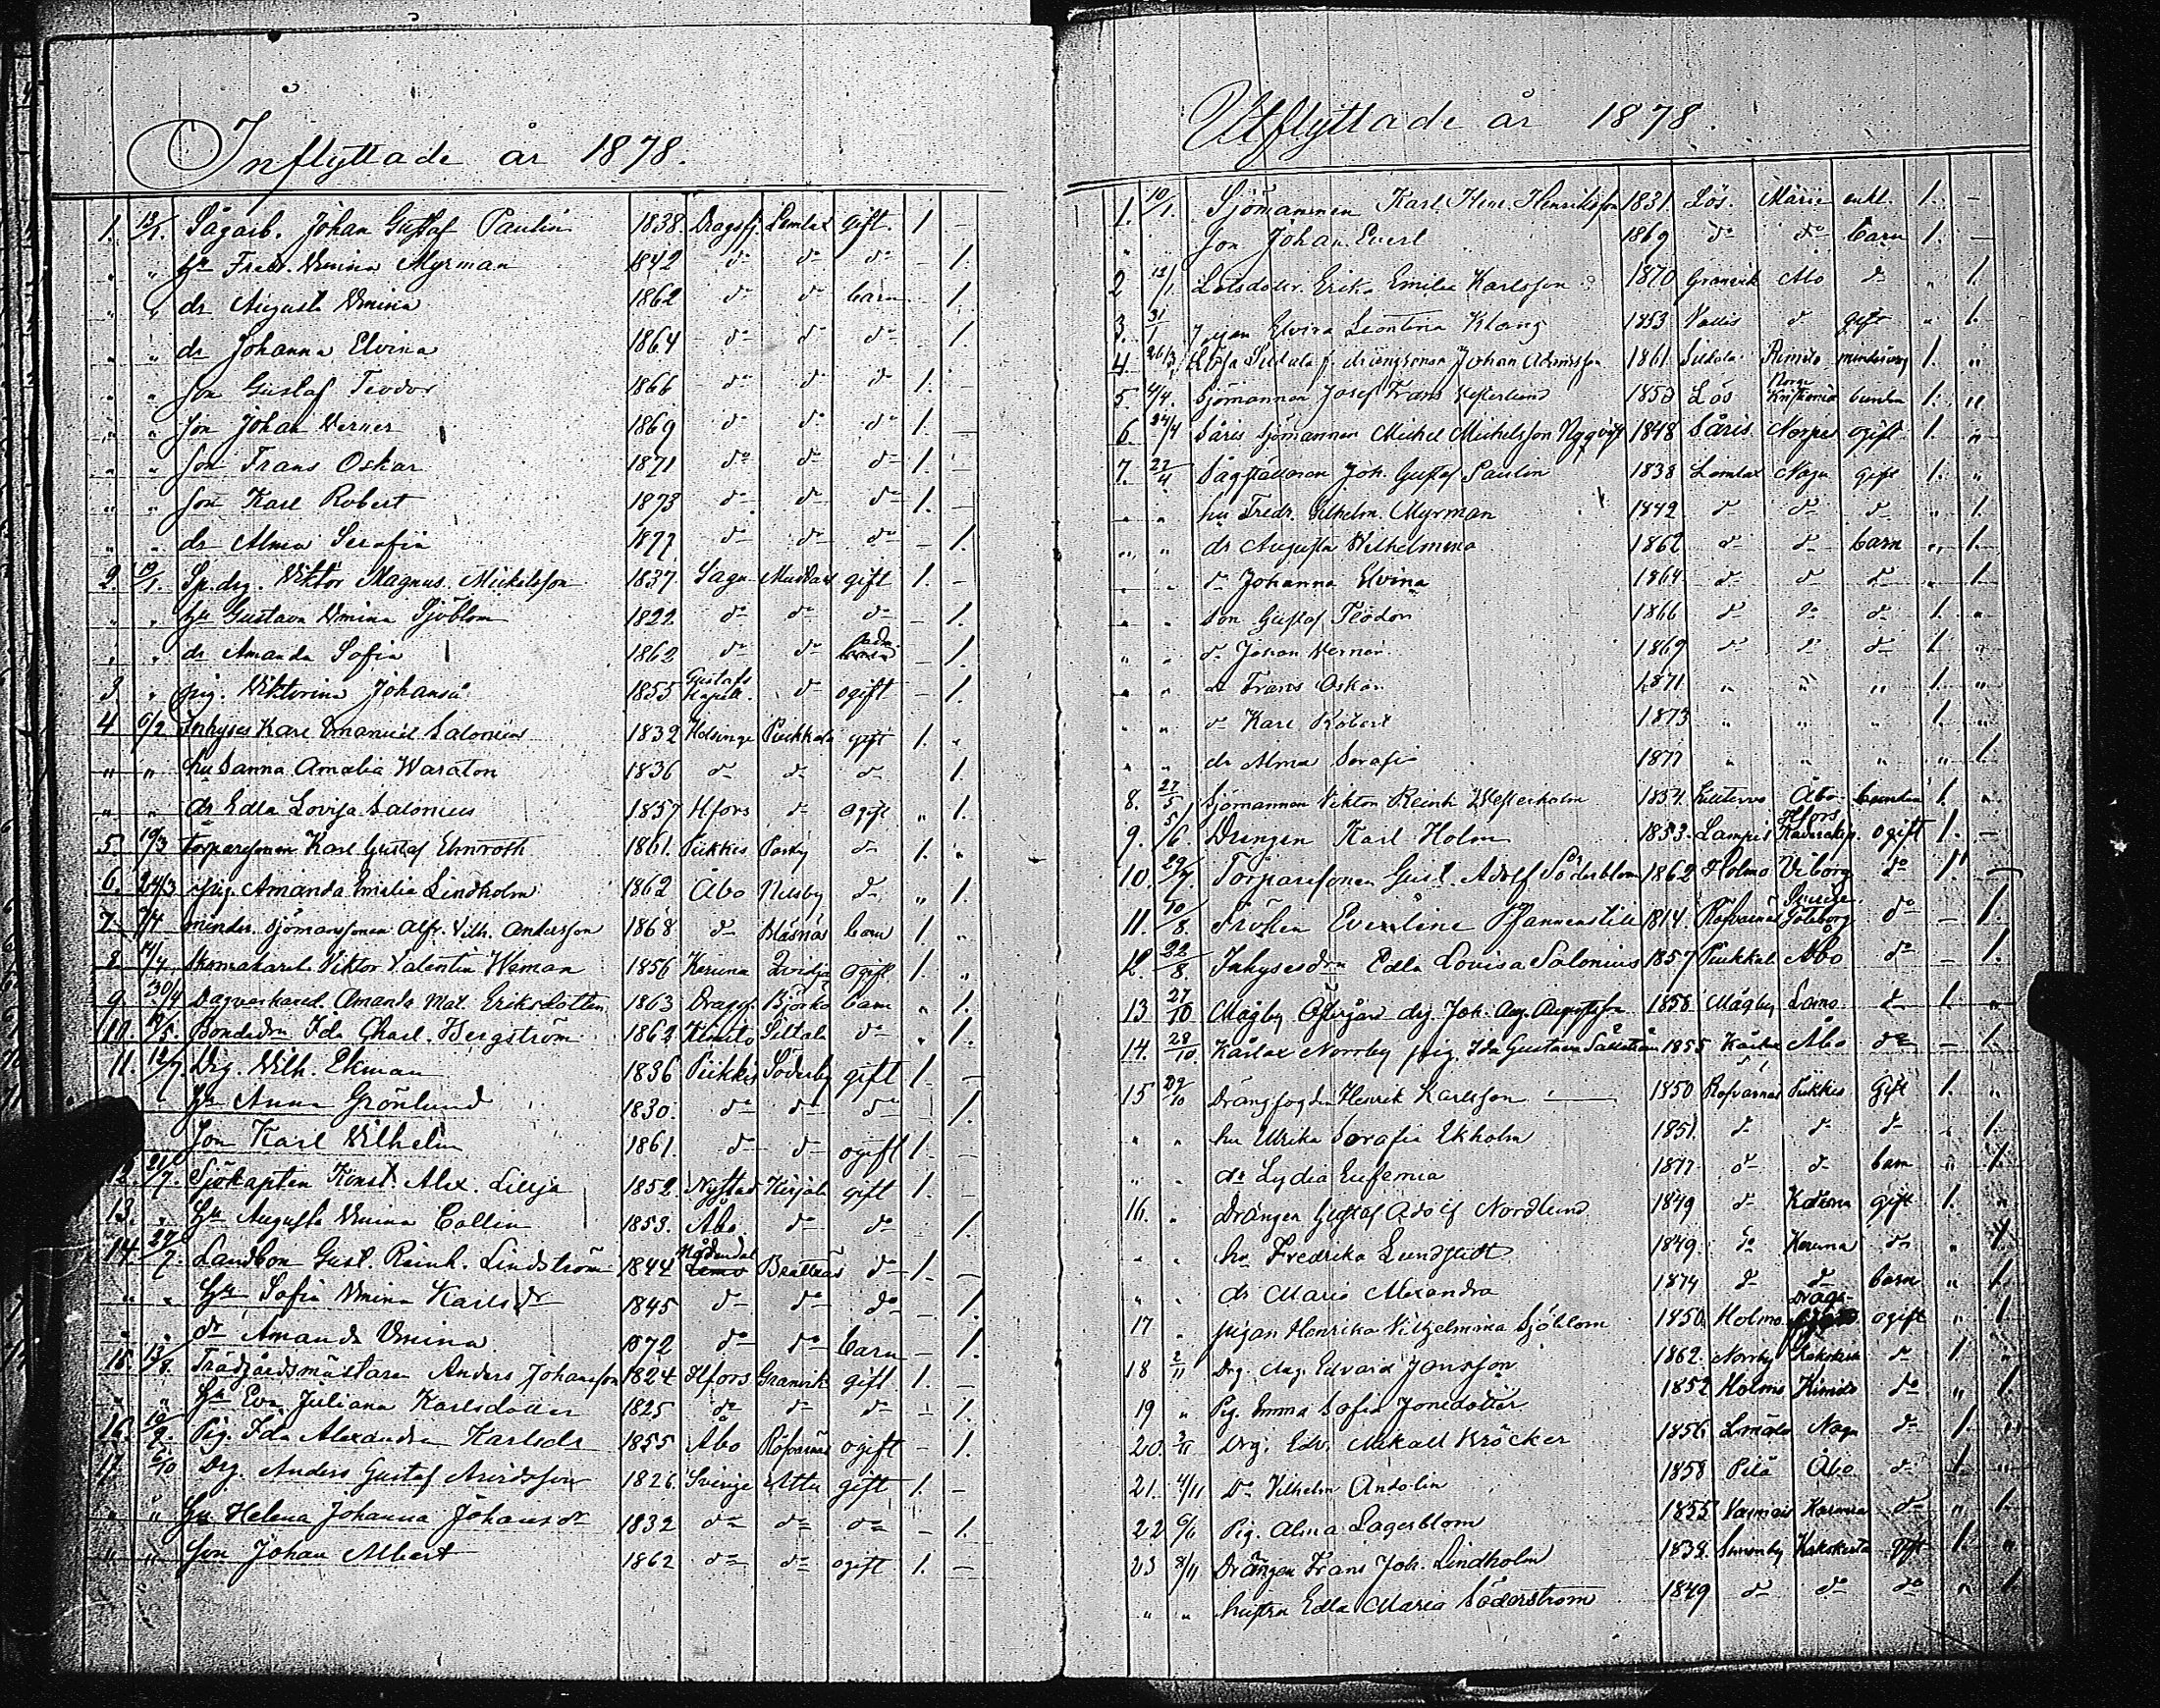 Inflyttade år 1878.
1. 13/1. Sågarb. Johan Gustaf Paulin 1838. Dragsfj. Lemlax gift. 1. –
" " hu Fredr. Vmina Myrman 1842 do do do – 1.
" " dr Augusta Vmina 1862 do do barn – 1.
" " dr Johanna Elvina 1864 do do do – 1
" " son Gustaf Teodor 1866 do do do 1. –
" " son Johan Verner 1869 do do do 1. –
" " son Frans Oskar 1871 do do do 1. –
" " son Karl Robert 1873 do do do 1. –
" " dr Alma Serafia 1877 do do do – 1.
2. 19/1. Sp.drg. Viktor Magnus Mickelsson 1837. Sagu Muddais gift 1. –
" " hu Gustava Vmina Sjöblom 1822 do do do – 1.
" " dr Amanda Sofia 1862 do do – 1.
3 " pig. Viktorina Johansd 1855 Gustafs Kapell. do ogift – 1.
4 6/2 Inhyses Karl Emanuel Salonius 1832 Helsinge Piukkala gift 1. "
" " hu Sanna Amalia Waraton 1836 do do do 1.
" " dr Edla Lovisa Salonius 1857 Hfors do ogift " 1.
5. 19/3 Torparesonen Karl Gustaf Elmroth 1861. Piikkis Parsby do 1. "
6. 24/3 pig. Amanda Emilia Lindholm 1862 Åbo Nilsby do " 1.
7. /4 minder. sjömanssonen Alfr. Vilh. Andersson 1868 do Bläsnäs barn 1. "
8. 14/4 Skomakarel. Viktor Valentin Weman 1856 Karuna Qvidja ogift 1. "
9. 30/4 Dagverkared. Amanda Mat. Eriksdotter 1863 Dragsf. Björkö barn " 1.
10. /5. Bondedrn Ida Charl. Bergström 1862 Kimito Sillala do " 1.
11. 12/7. Drg. Vilh. Ekman 1836 Piikkis Söderby gift 1. –
hu Anna Grönlund 1830. do do do 1.
son Karl Vilhelm 1861. do do ogift 1. –
12. 21/7. Sjökapten Konst. Alex. Lilja 1852 Nystad Kirjala gift 1. –
13. " hu Augusta Vmina Collin 1853. Åbo do do 1.
14. 27/7. Landbon Gust. Reinh. Lindström 1844 Nådendal Lemo Brattnäs do 1. –
" " hu Sofia Vmina Karlsdr 1845 do do do – 1.
" " dr Amanda Vmina 1872 do do barn – 1.
15. 13/8. Trädgårdsmästaren Anders Johansson 1824 Hfors Granvik gift 1. –
" " hu Eva Juliana Karlsdotter 1825 do do do – 1.
16. 19/9. Pig. Ida Alexandra Karlsdr 1855 Åbo Rofvarnäs ogift – 1.
17 6/10 Drg. Anders Gustaf Arvidsson 1826. Sverige Attu gift 1. –
" " hu Helena Johanna Johansdr 1832 do do do – 1.
" " son Johan Albert 1862 do do ogift 1. –
Utflyttade år 1878.
1. 10/1. Sjömannen Karl Henr. Henriksson 1831. Lös. Marie enkl. 1. –
" " son Johan Evert 1869 do do barn 1. –
2 12/1. Lotsdottr. Erika Emilia Karlsson 1870 Granvik Åbo do " 1.
3. 31/1 Elvira Leontina Klang 1853 Vallis do gift " 1.
4. 26/3 Sillala drängsonen Johan 1861. Sillala Rimito minderårig 1. "
5. 4/4. Sjömannen Josef Frans Vesterlund 1850 Lös Norge Kristiania 1. "
6 24/4 Såris sjömannen Mickel Mickelsson Nyqvist 1848 Såris Nerpes ogift 1. "
7. 27/4 Sågställaren Joh. Gustaf Paulin 1838 Lemlax Nagu gift 1. "
" " hu Fredr. Vilhelm. Myrman 1842 do do do " 1.
" " dr Augusta Vilhelmina 1862 do do barn " 1.
" " do Johanna Elvina 1864 do do do " 1.
" " son Gustaf Teodor 1866 do do do 1. "
" " do Johan Verner 1869 do do do 1 "
" " do Frans Oskar 1871 " " " 1. "
" " do Karl Robert 1873 " " " 1. "
" " dr Alma Serafia 1877 " " " " 1.
8. 27/5 Sjömannen Viktor Reinh. Vesterholm 1854. Åbo 1. "
9. 5/6. Drengen Karl Holm 1853. Lampis Hfors ogift 1. –
10. 29/7. Torparesonen Gust. Adolf Söderblom 1862 Holmo Viborg do 1. –
11. 10/8. Fröken Evelina Pfannenstill 1814. Rofvarnäs Sverige Göteborg do – 1.
12. 22/8. Inhysesdrn Edla Lovisa Salonius 1857 Piukkal Åbo do – 1.
13 27/10 Mågby Östergård drg. Joh. Aug. Augustsson 1858 Mågby Lemo do 1. "
14. 28/10. Kårlax Norrby pig. Ida Gustava 1855 Kårlax Åbo do – 1.
15 29/10 Drängfogden Henrik Karlsson 1850 Rofvarnäs Piikkis Gift 1. "
" " hu Ulrika Serafia Ekholm 1851. do do do " 1.
" " dr Lydia Eufemia 1877 do do barn " 1.
16. " Drängen Gustaf Adolf Nordlund 1849 do Karuna gift 1. "
" " hu Fredrika Lundstedt 1849. do Karuna do " 1.
" " dr Maria Alexandra 1874 do do barn " 1.
17 " pigan Henrika Vilhelmina Sjöblom 1850 Holmo Drags- ogift " 1.
18 2/11 Drg. Aug. Edvard Jonsson 1862. Norrby Kakskerta do 1. "
19 " Pig. Emma Sofia Jonsdotter 1852 Holmo Kimito do " 1.
20. 3/11 Drg. Edv. Mikael Kröcker 1856. Nagu do 1. "
21. 4/11 Do Vilhelm Andelin 1858 Åbo do 1. "
22 6/11 Pig. Alma Lagerblom 1855 Karuna do " 1.
23 8/11 Drängen Frans Joh. Lindholm 1838. Kakskerta gift 1. "
" " hustru Edla Maria Söderström 1849 do do do " 1.